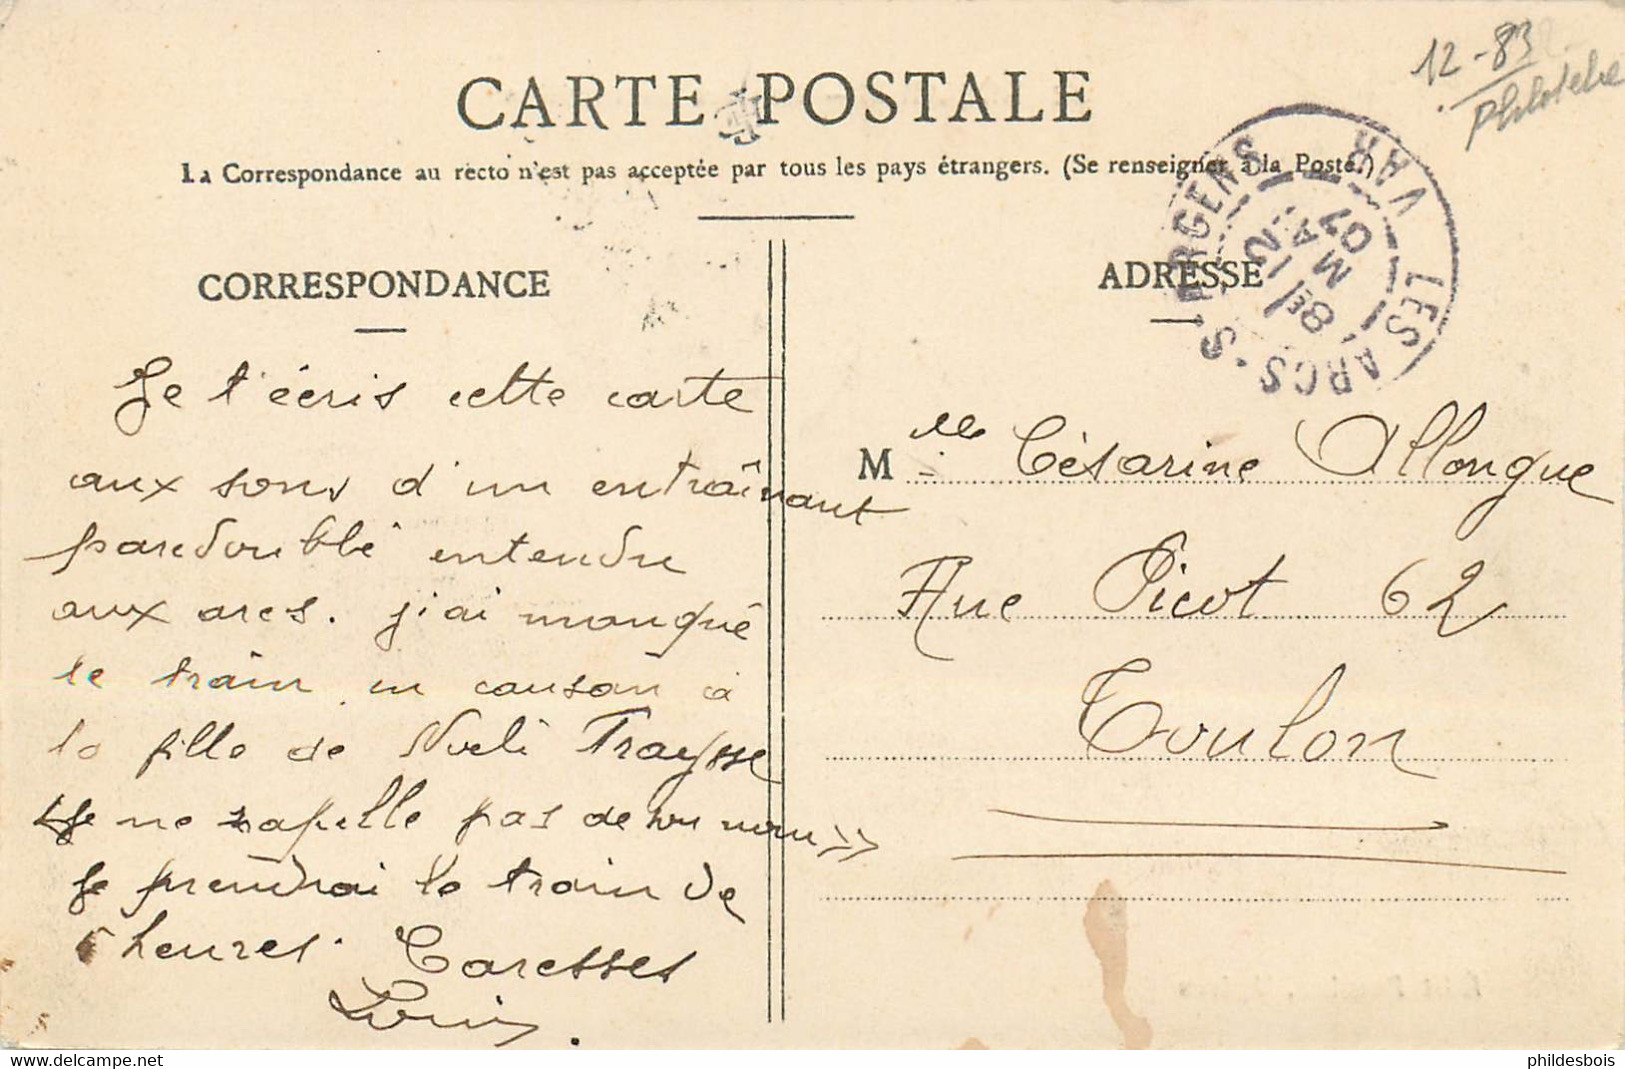 12-83
Philotelie
CARTE POSTALE
La Correspondance au recto n'est pas acceptée par tous les pays étrangers. (Se renseigner à la Poste.)
LES ARCS-S-ARGENS VAR
8E 12
MA
07
CORRESPONDANCE
Je t'écris cette carte
aux sons d'un entraînant
pasedoublé entendu
aux arcs. j'ai manqué
le train en causan à
la fille de Noeli Traysse
Je ne rapelle pas de son nom »
Je prendrai le train de
6 heures. Caresses
Louis.
ADRESSE
Mlle Césarine Allongue
Rue Picot 62
Toulon
www.delcampe.net
phildesbois